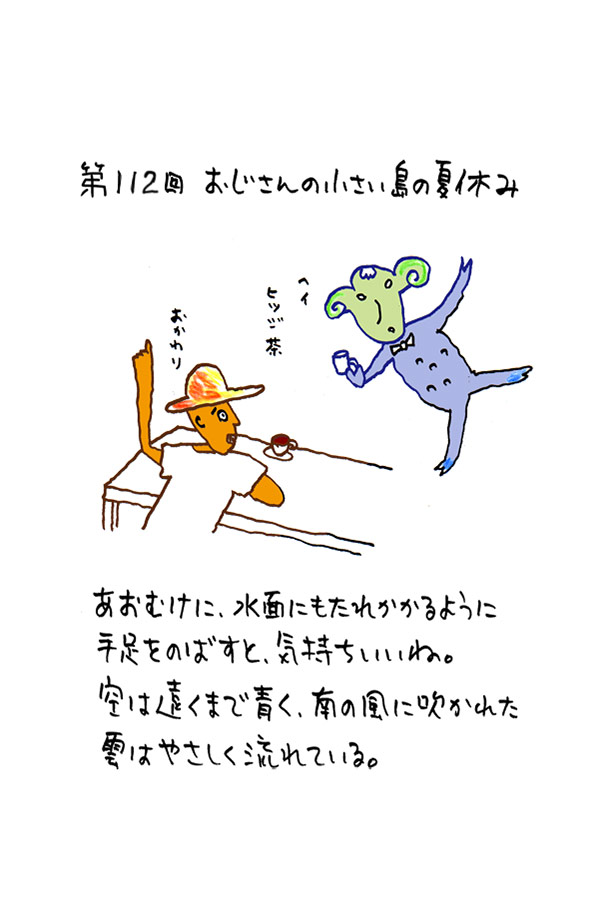 第112回 おじさんの小さい島の夏休み
ヘイ
ヒツジ茶
おかわり
あおむけに、水面にもたれかかるように
手足をのばすと、気持ちいいね。
空は遠くまで青く、南の風に吹かれた
雲はやさしく流れている。